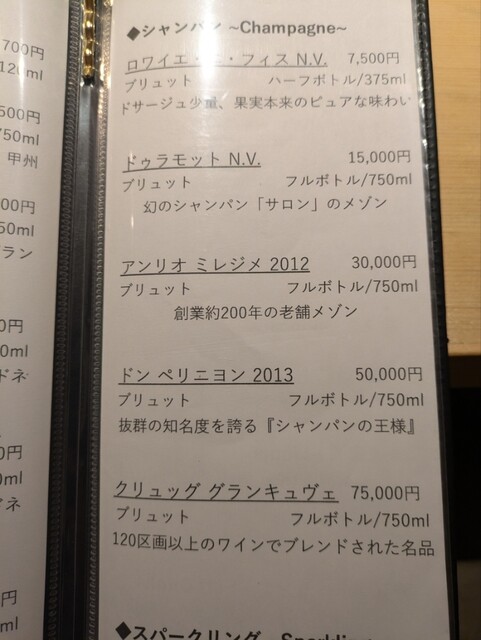 700円
120ml
500円
750ml
甲州
00円
50ml
ラン
0円
0ml
ドネ
0円
0ml
ドネ
円
ml
◆シャンパン ~Champagne~
ロワイエ・エ・フィス N.V. 7,500円
ブリュット ハーフボトル/375ml
ドサージュ少量、果実本来のピュアな味わい
ドゥラモット N.V. 15,000円
ブリュット フルボトル/750ml
幻のシャンパン「サロン」のメゾン
アンリオ ミレジメ 2012 30,000円
ブリュット フルボトル/750ml
創業約200年の老舗メゾン
ドン ペリニヨン 2013 50,000円
ブリュット フルボトル/750ml
抜群の知名度を誇る『シャンパンの王様』
クリュッグ グランキュヴェ 75,000円
ブリュット フルボトル/750ml
120区画以上のワインでブレンドされた名品
◆スパークリング